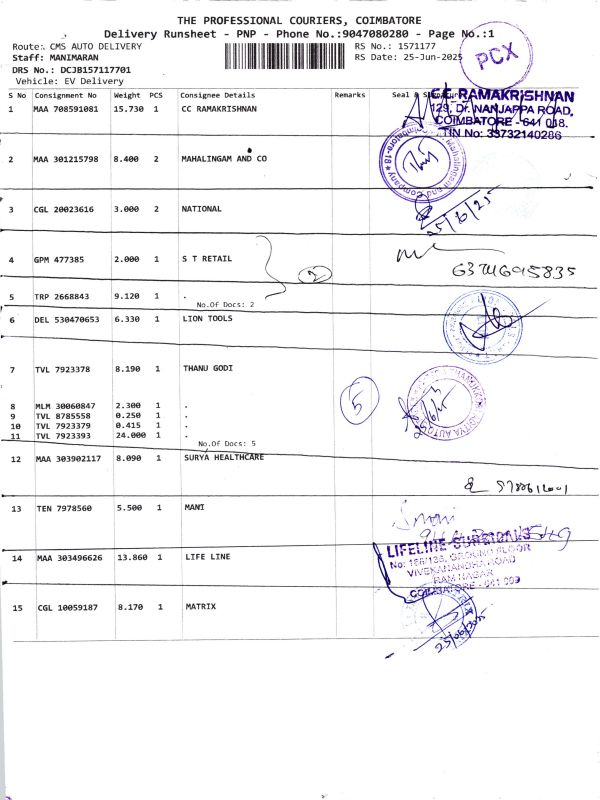 THE PROFESSIONAL COURIERS, COIMBATORE
Delivery Runsheet - PNP - Phone No.:9047080280 - Page No.:1
Route: CMS AUTO DELIVERY
RS No.: 1571177
Staff: MANIMARAN
RS Date: 25-Jun-2025
DRS No.: DCJB157117701
Vehicle: EV Delivery
PCX
S No Consignment No Weight PCS Consignee Details Remarks Seal & Signature
1 MAA 708591081 15.730 1 CC RAMAKRISHNAN
RAMAKRISHNAN
129, Dr. NANJAPPA ROAD,
COIMBATORE - 641 018.
TIN No: 33732140286
2 MAA 301215798 8.400 2 MAHALINGAM AND CO
Mahalingam and Company
Coimbatore-18
3 CGL 20023616 3.000 2 NATIONAL
25/6/25
4 GPM 477385 2.000 1 S T RETAIL
2
6374695835
5 TRP 2668843 9.120 1 .
No.Of Docs: 2
6 DEL 530470653 6.330 1 LION TOOLS
7 TVL 7923378 8.190 1 THANU GODI
5
8 MLM 30060847 2.300 1 .
9 TVL 8785558 0.250 1 .
10 TVL 7923379 0.415 1 .
11 TVL 7923393 24.000 1 .
No.Of Docs: 5
12 MAA 303902117 8.090 1 SURYA HEALTHCARE
13 TEN 7978560 5.500 1 MANI
14 MAA 303496626 13.860 1 LIFE LINE
LIFELINE SURGICALS
GROUND FLOOR
VIVEKANANDHA ROAD
RAM NAGAR
COIMBATORE - 641 009
15 CGL 10059187 8.170 1 MATRIX
25/06/2025